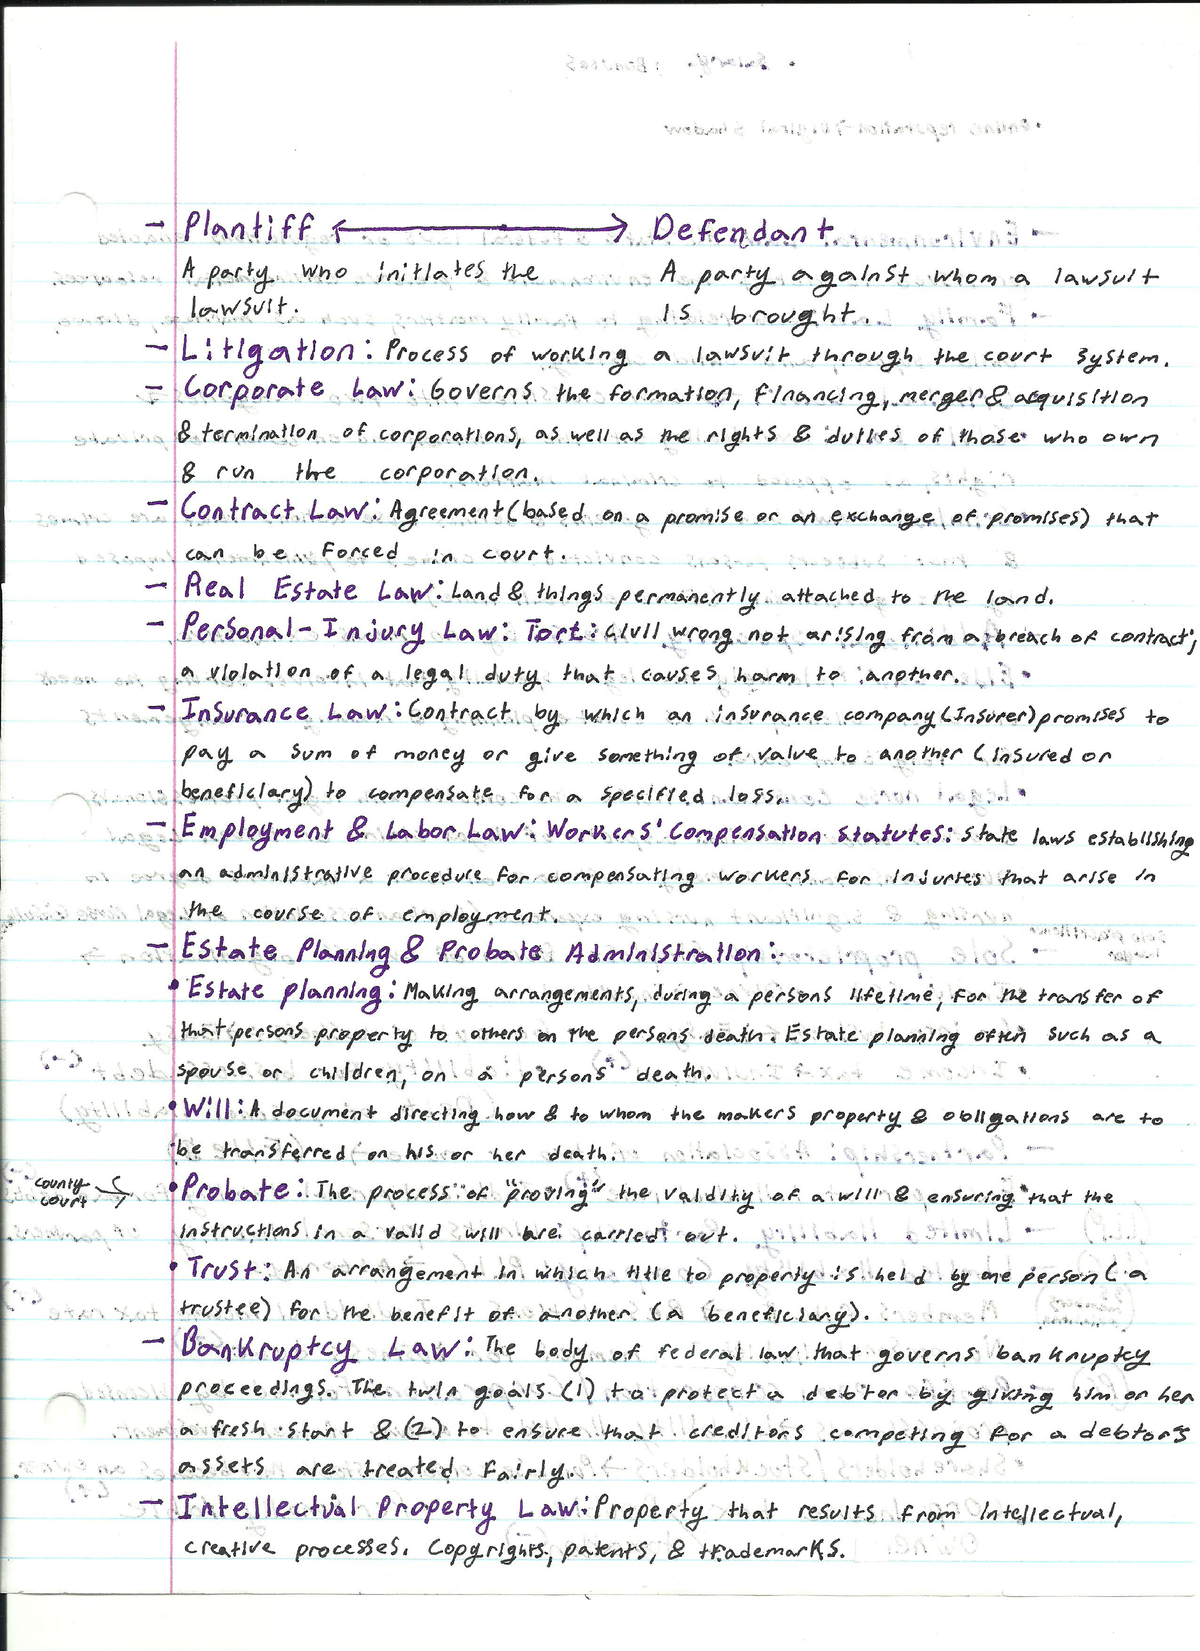 - Plantiff ⟷ Defendant
A party who initiates the A party against whom a lawsuit
lawsuit. is brought.
- Litigation: Process of working a lawsuit through the court system.
- Corporate Law: Governs the formation, financing, merger & acquisition
& termination of corporations, as well as the rights & duties of those who own
& run the corporation.
- Contract Law: Agreement (based on a promise or an exchange of promises) that
can be forced in court.
- Real Estate Law: Land & things permanently attached to the land.
- Personal-Injury Law: Tort: civil wrong not arising from a breach of contract;
a violation of a legal duty that causes harm to another.
- Insurance Law: Contract by which an insurance company (Insurer) promises to
pay a sum of money or give something of value to another (insured or
beneficiary) to compensate for a specified loss.
- Employment & Labor Law: Workers' Compensation statutes: state laws establishing
an administrative procedure for compensating workers for injuries that arise in
the course of employment.
- Estate Planning & Probate Administration:
• Estate planning: Making arrangements, during a persons lifetime, for the transfer of
that persons property to others on the persons death. Estate planning often such as a
spouse or children, on a persons death.
• Will: A document directing how & to whom the makers property & obligations are to
be transferred on his or her death.
county
court
• Probate: The process of "proving" the validity of a will & ensuring that the
instructions in a valid will are carried out.
• Trust: An arrangement in which title to property is held by one person (a
trustee) for the benefit of another (a beneficiary).
- Bankruptcy Law: The body of federal law that governs bankruptcy
proceedings. The twin goals (1) to protect a debtor by giving him or her
a fresh start & (2) to ensure that creditors competing for a debtors
assets are treated fairly.
- Intellectual Property Law: Property that results from intellectual,
creative processes. Copyrights, patents, & trademarks.